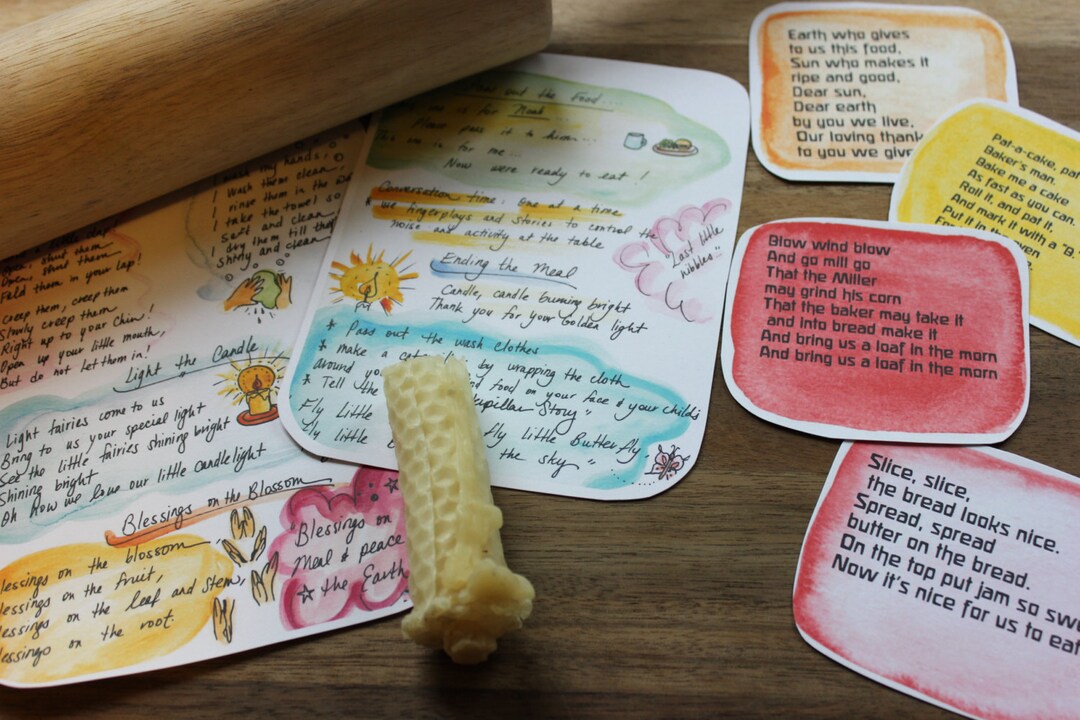 my hands,
I wash them clean,
I rinse them in the
I take the towel so
soft and clean
dry them till they
shiny and clean.
Open, shut them
Fold them in your lap!
Creep them, creep them
Slowly creep them
Right up to your Chin!
Open up your little mouth,
But do not let them in!
Light the Candle
Light fairies come to us
Bring to us your special light
See the little fairies shining bright
Shining bright
Oh How we love our little candle light
Blessings on the Blossom
Blessings on the blossom
Blessings on the fruit,
Blessings on the leaf and stem,
Blessings on the root.
Blessings on
Meal & peace
the Earth
out the Food....
is for Noah
Please pass it to him...
is for me...
Now were ready to eat!
Conversation time: One at a time
* Use fingerplays and stories to control the
noise and activity at the table
"Last little
nibbles"
Ending the Meal
Candle, candle burning bright
Thank you for your golden light
* Pass out the wash clothes
* Make a by wrapping the cloth
around food on your face & your child's
* Tell the Caterpillar Story"
Fly little fly little Butterfly,
Fly little the sky"
Earth who gives
to us this food,
Sun who makes it
ripe and good,
Dear sun,
Dear earth
by you we live,
Our loving thank
to you we give
Pat-a-cake, pat
Baker's man.
Bake me a cake
As fast as you can.
Roll it, and pat it,
And mark it with a "B."
Put it in the oven
Blow wind blow
And go mill go
That the Miller
may grind his corn
That the baker may take it
and into bread make it
And bring us a loaf in the morn
And bring us a loaf in the morn
Slice, slice,
the bread looks nice.
Spread, spread
butter on the bread.
On the top put jam so swe
Now it's nice for us to eat